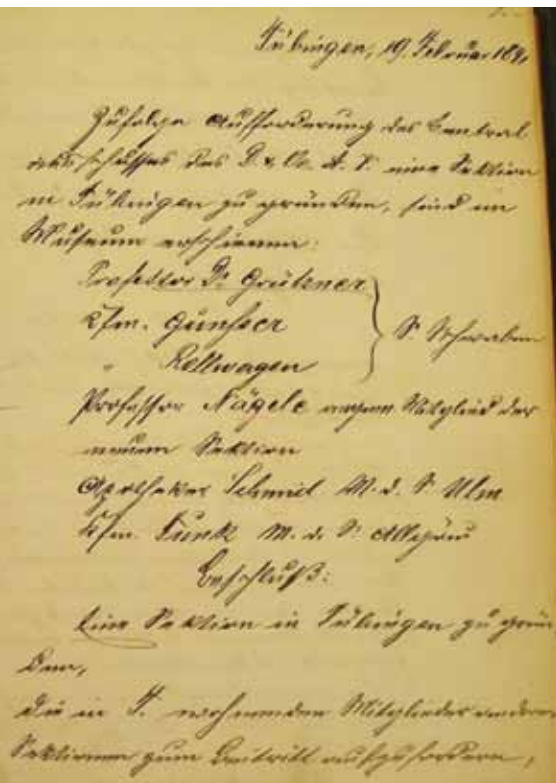 Tübingen, 19. Februar 1891
Zufolge Aufforderung des Central
ausschusses des D. & Oe. A. V. eine Sektion
in Tübingen zu gründen, sind im
Museum erschienen:
Professor Dr Grützner
Kfm. Günther
" Rellwagen
S. Schwaben
Professor Nägele Mitglied der
neuen Sektion
Apotheker Schmid M. d. S. Ulm
Kfm. Funk M. d. S. Allgäu
Beschluß:
Eine Sektion in Tübingen zu grün
den,
die in T. wohnenden Mitglieder anderer
Sektionen zum Beitritt aufzufordern,